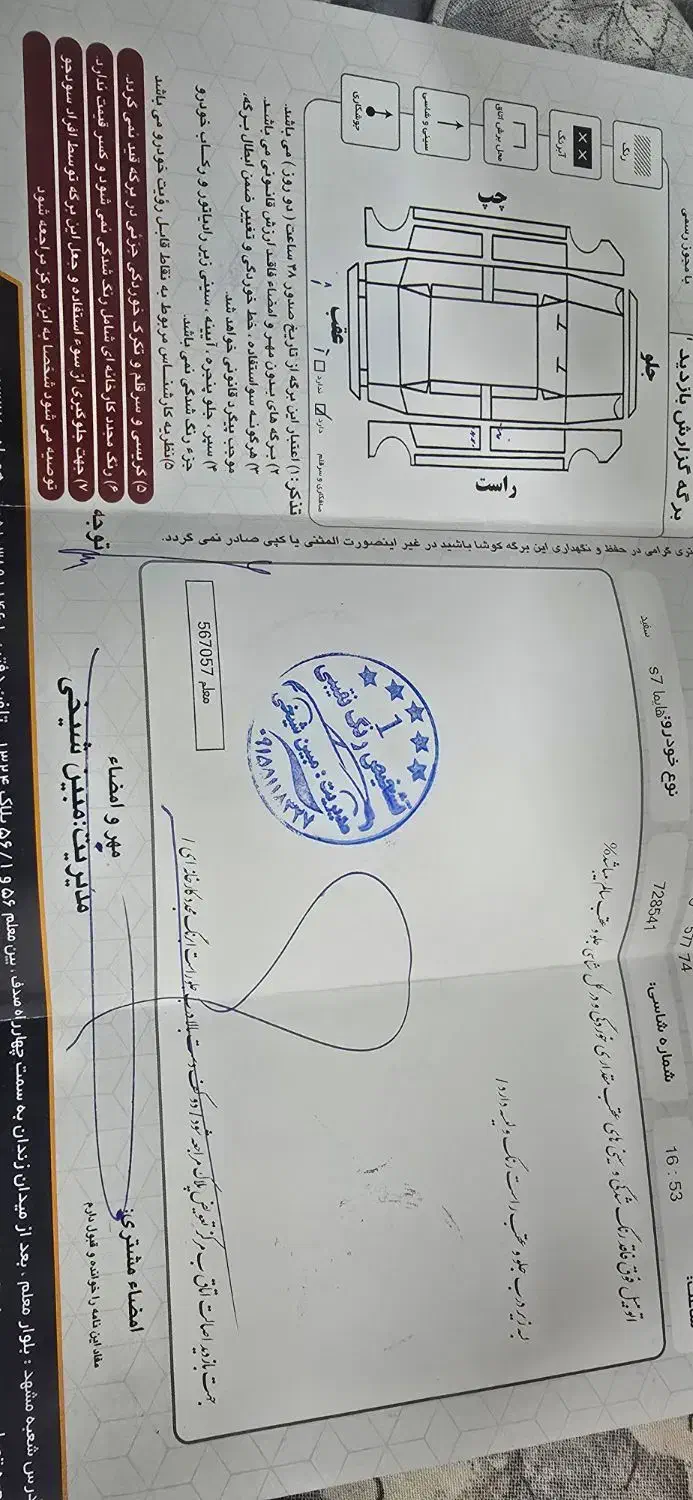 با مجوز رسمی
برگه گزارش بازدید
577 74
16 : 53
نوع خودرو: هایما s7
سفید
728541
شماره شاسی:
جلو
چپ
راست
عقب
رنگ
آبرنگ
محل برش اتاق
سینی و شاسی
جوشکاری
صافکاری و سرقلم دارد ندارد
تذکر: ۱) اعتبار این برگه از تاریخ صدور ۴۸ ساعت ( دو روز ) می باشد.
۲) برگه های بدون مهر و امضاء فاقد ارزش قانونی می باشد.
۳) هرگونه سواستفاده ، خط خوردگی و تغییر ضمن ابطال برگه،
موجب پیگرد قانونی خواهد شد.
۴) سپر، جلو پنجره ، آیینه ، سینی زیر رادیاتور و رکاب خودرو
جزء رنگ شدگی نمی باشد.
۵) نظریه کارشناس مربوط به نقاط قابل رؤیت خودرو می باشد
۵) کرسی و سرقلم و تکرگ خوردگی جزئی در برگه قید نمی گردد.
۶) رنگ مجدد کارخانه ای شامل رنگ شدگی نمی شود و کسر قیمت ندارد.
۷) جهت جلوگیری از سوء استفاده و جعل این برگه توسط افراد سودجو
توصیه می شود شخصا به این مرکز مراجعه شود
توجه
تری گرامی در حفظ و نگهداری این برگه کوشا باشید در غیر اینصورت المثنی یا کپی صادر نمی گردد.
اتومبیل فوق فاقد رنگ شدگی و سینی های عقب مقداری خوردگی و در کل شاسی جلو و عقب سالم میباشد%
لبه زیر درب جلو و عقب راست رنگ و لیسه دارد/
جهت بازدید اصالت اتاق به مرکز تعویض پلاک مراجعه شود/
معلم 567057
تشخیص رنگ نقیبی
1
مدیریت : مبین شیخی
مهر و امضاء
مدیریت: مبین شیخی
امضاء مشتری:
مفاد این نامه را خوانده و قبول دارم
درس شعبه مشهد : بلوار معلم ، بعد از میدان زندان به سمت چهارراه صدف، بین معلم ۵۶ و ۵۶/۱ پلاک ۱۳۲۴